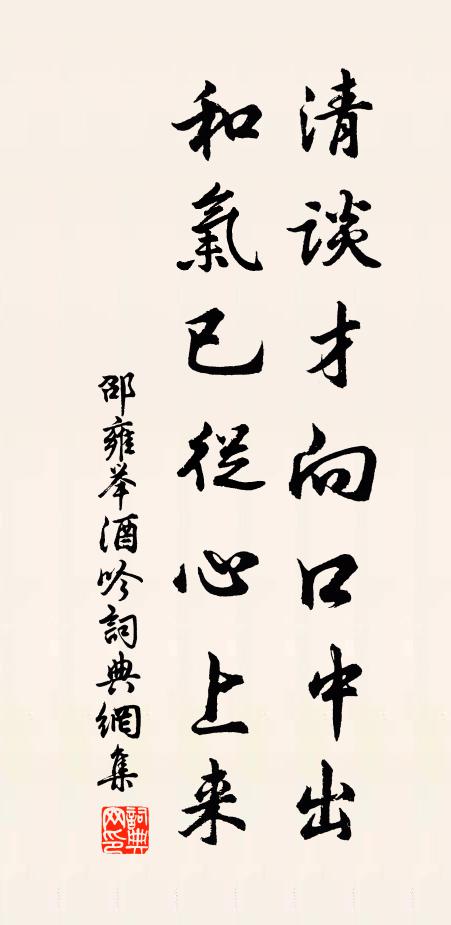 清談才向口中出
和氣已從心上来
邵雍举酒吟詞典網集
詞典网印